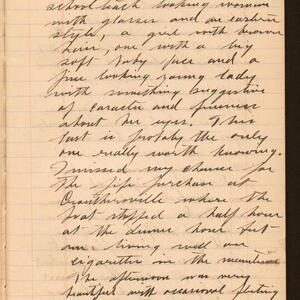 school teach looking woman
with glasses and an eastern
style, a girl with brown
hair, one with a big
soft baby face and a
fine looking young lady
with something suggestive
of caracter and fineness
about her eyes. This
last is probably the only
one really worth knowing.
I missed my chance for
the pipe purchase at
where the
boat stopped a half hour
at the dinner hour but
am living well on
cigarettes in the meantime
The afternoon was very
beautiful with occasional